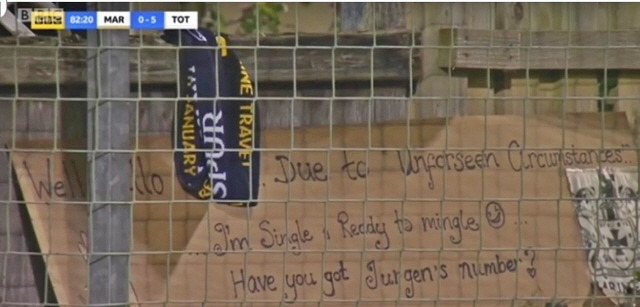 BBC 82:20 MAR 0-5 TOT
NE TRAVEL
SPUR
JANUARY
Well llo . Due to Unforseen Circumstances..
...I'm Single & Ready to mingle ☺...
Have you got Jurgen's number?